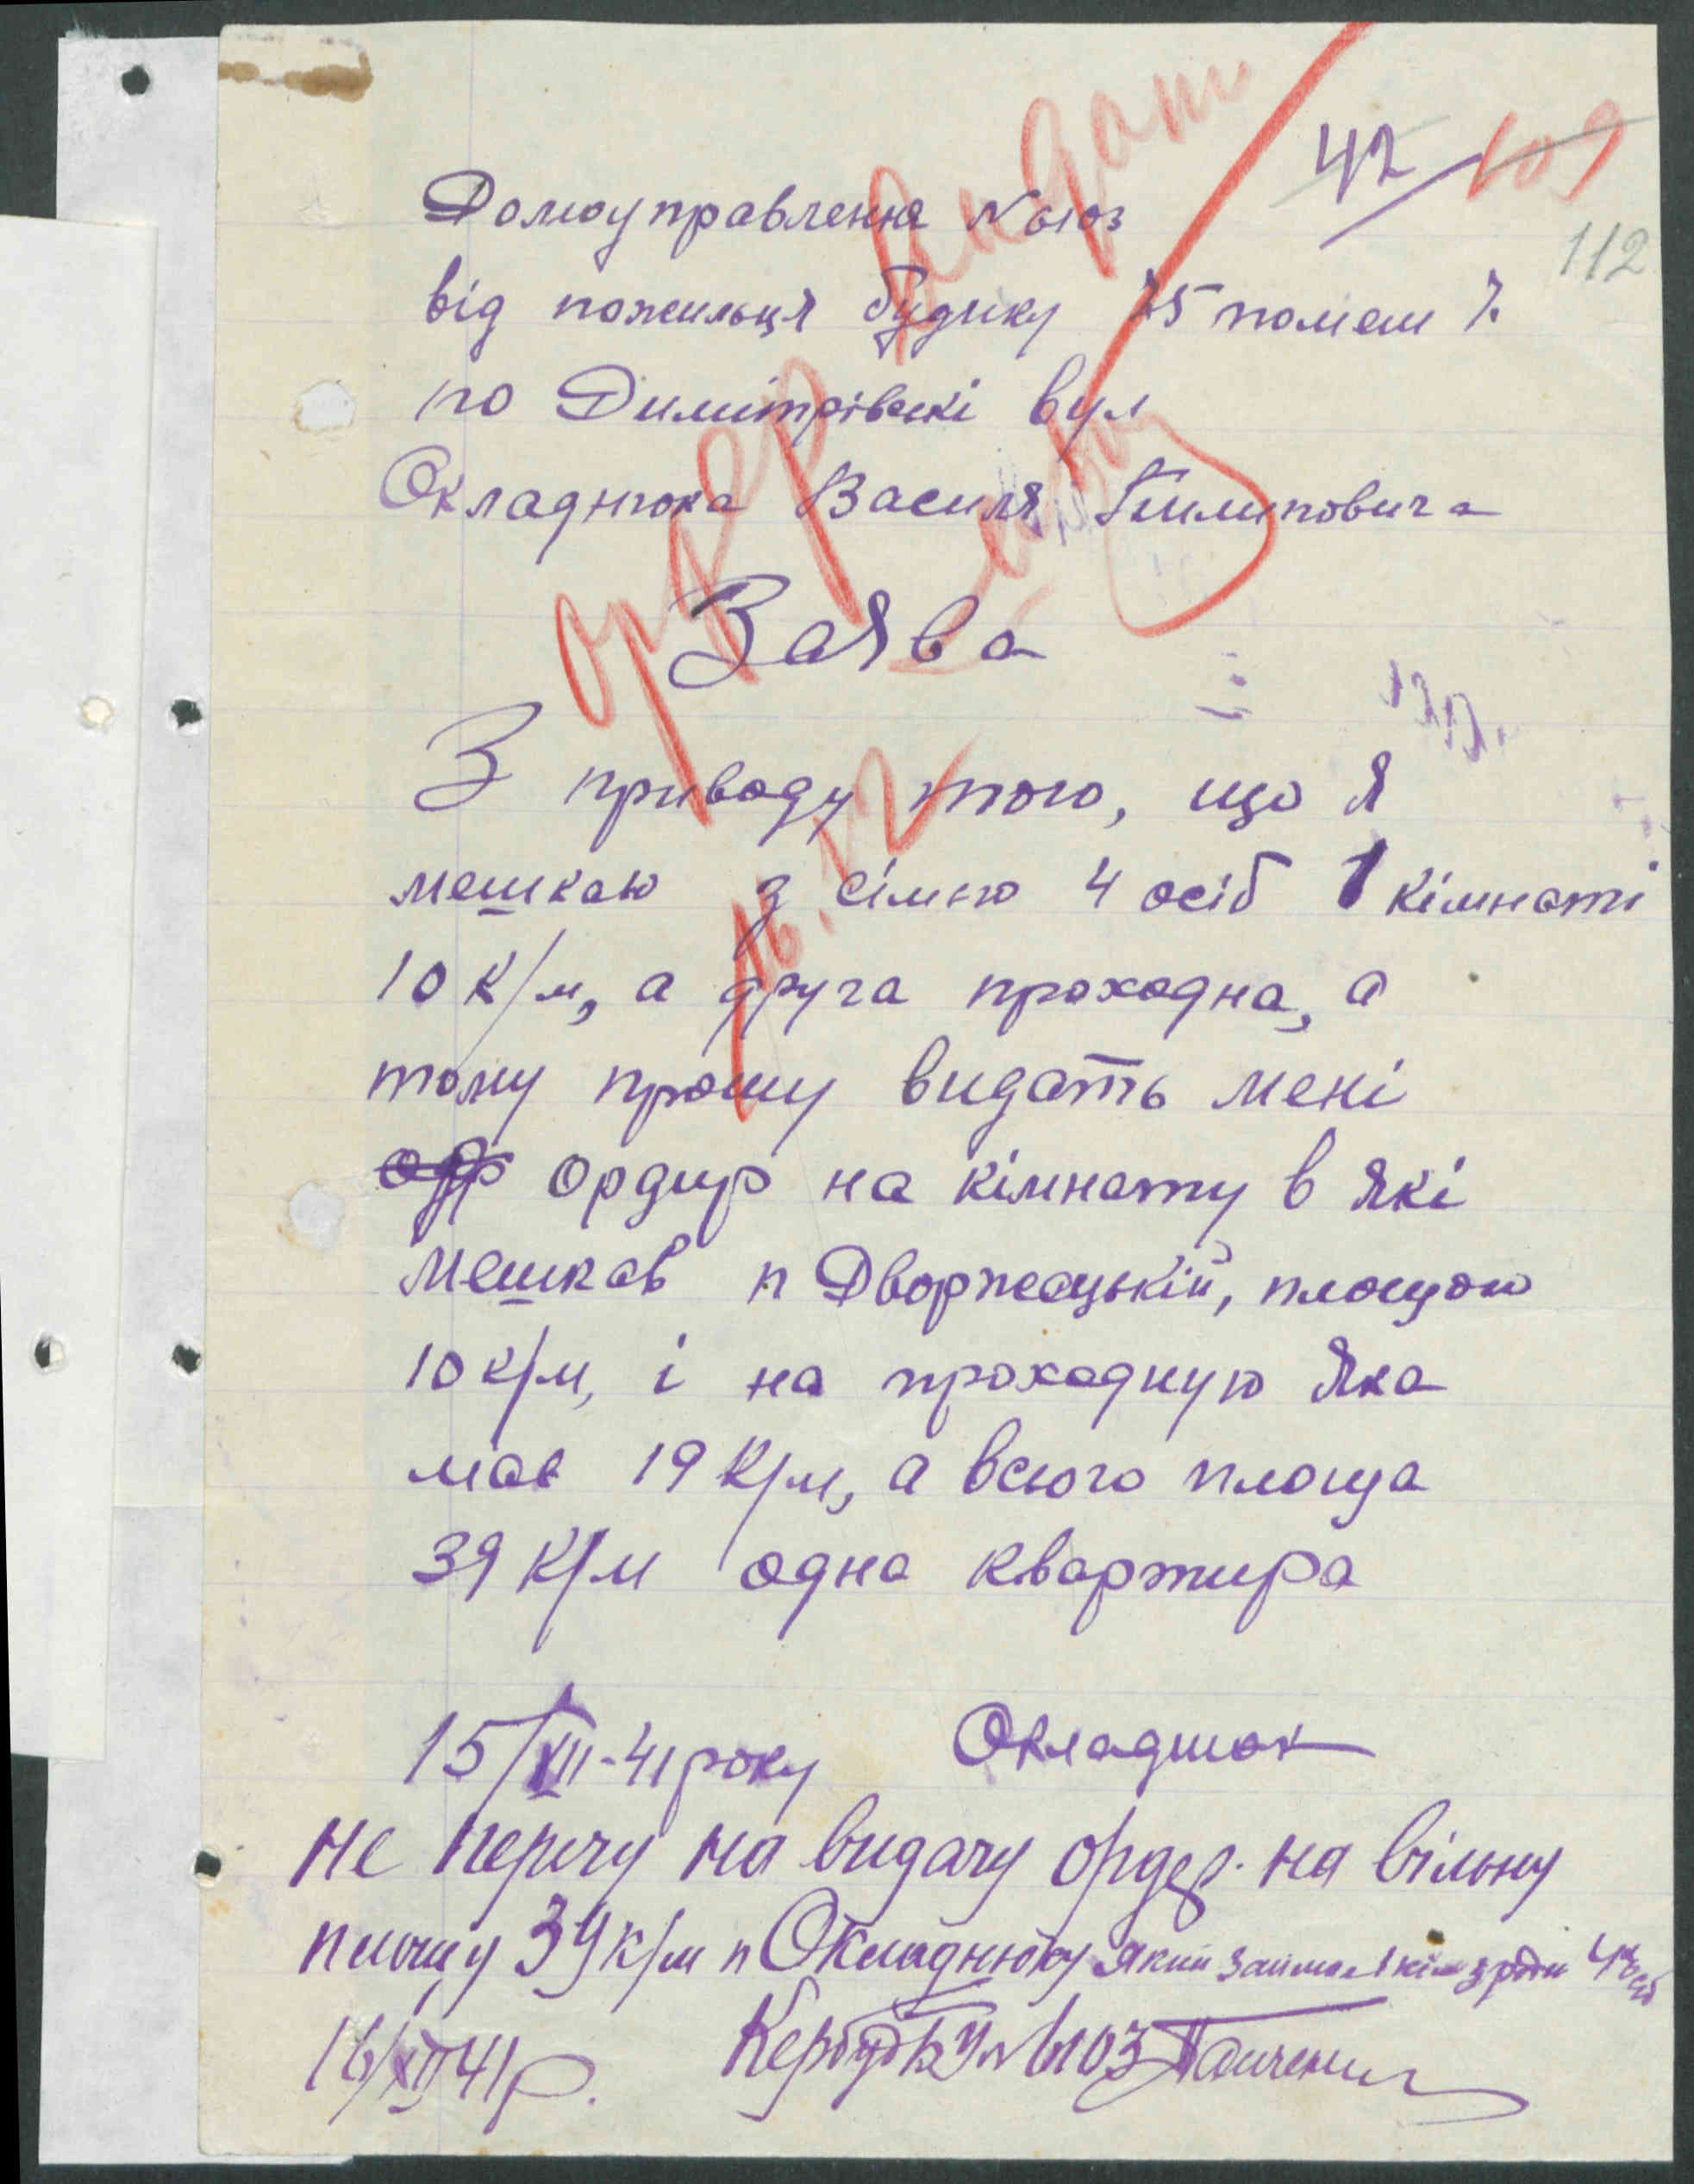 42 109
112
Домоуправлення № 6103
від пожильця будику 75 помеш 7.
по Димітрівскі вул
Окладнюка Василя Пилиповича
Заява
ордер видати
16.12
З приводу того, що я
мешкаю з сімню 4 осіб 1 кімнаті
10 к/м, а друга проходна, а
тому прошу видать мені
ордир на кімнату в які
мешкав п Дворжецькій, площою
10 к/м, і на проходную яка
має 19 к/м, а всього площа
39 к/м одна квартира
15/XII-41 року Окладнюк
не перечу на видачу ордер. на вільну
площу 39 к/м п Окладнюку який займа 1 кім з
16/XII 41 р. Кербуд Б У № 6103